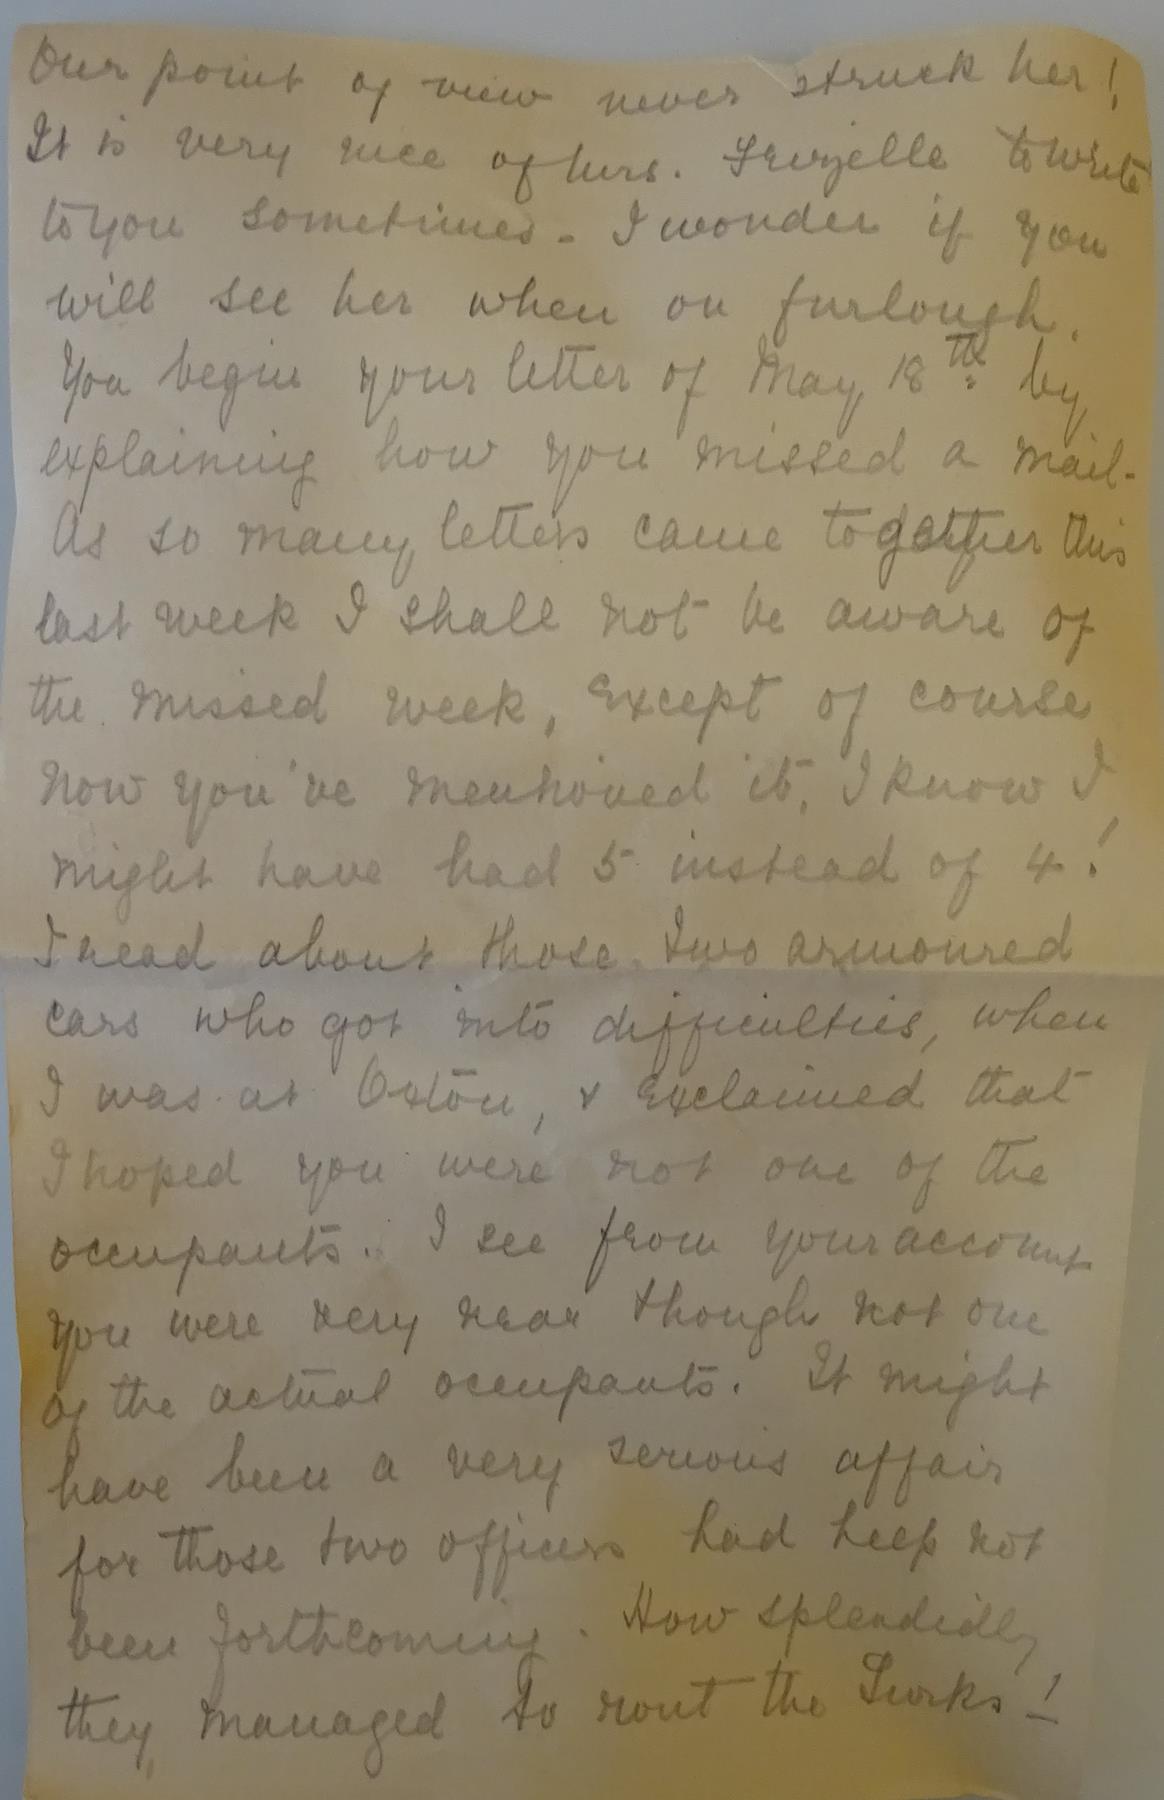 Our point of view never struck her!
It is very nice of Mrs. Frizelle to write
to you sometimes - I wonder if you
will see her when on furlough.
You begin your letter of May 18th by
explaining how you missed a mail.
As so many letters came together this
last week I shall not be aware of
the missed week, except of course
now you've mentioned it, I know I
might have had 5 instead of 4!
I read about those two armoured
cars who got into difficulties, when
I was at Oxton, & exclaimed that
I hoped you were not one of the
occupants. I see from your account
you were very near though not one
of the actual occupants. It might
have been a very serious affair
for those two officers had help not
been forthcoming. How splendidly
they managed to rout the Turks!